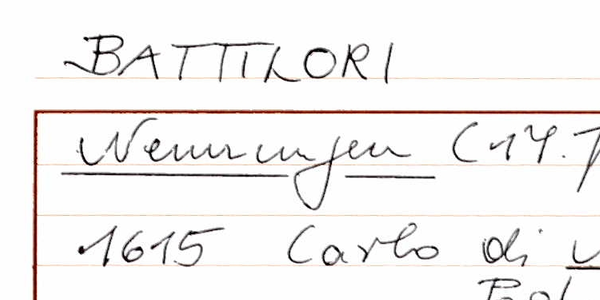 BATTILORI
Nennungen (14.
1615 Carlo di